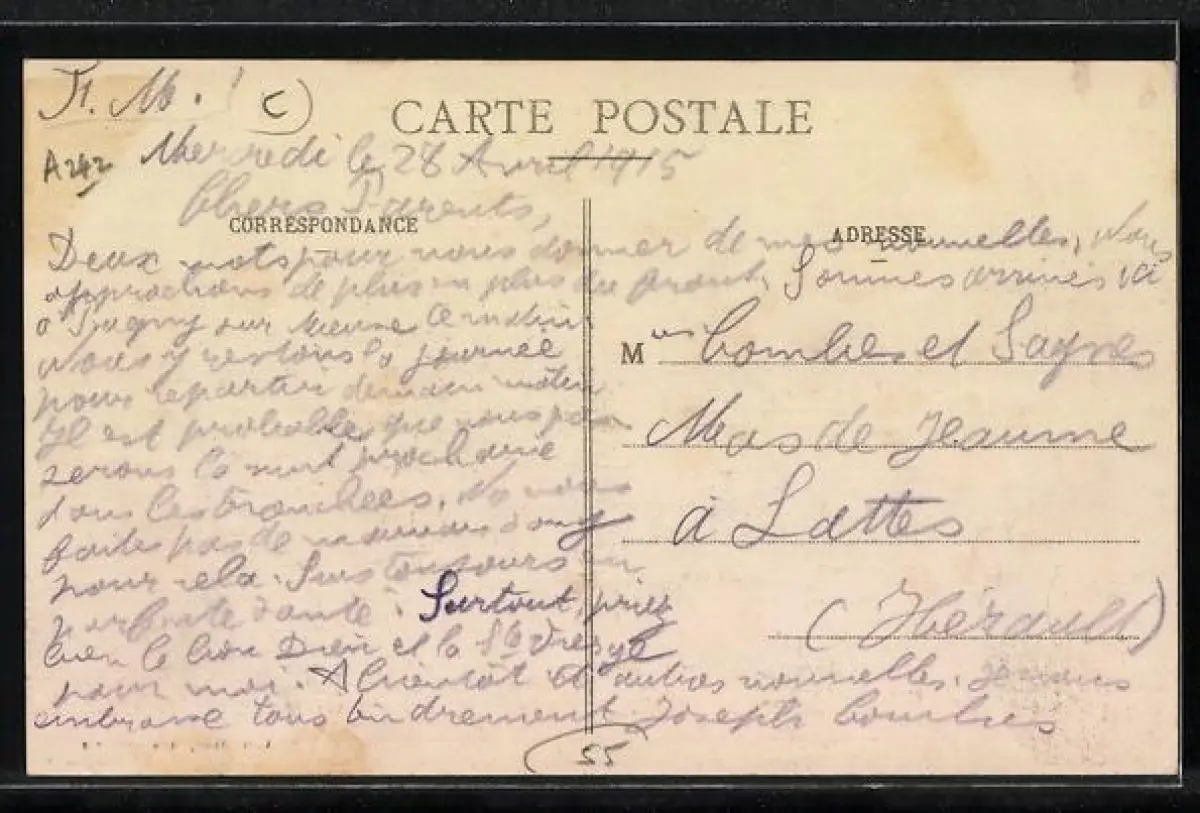 F. M.
C
CARTE POSTALE
A242
Mercredi le 28 Avril 1915
Chers Parents,
CORRESPONDANCE
ADRESSE
Deux mots pour vous donner de mes nouvelles, Nous
approchons de plus en plus du front, Sommes arrivés ici
a Pagny sur Meuse ce matin
Nous y restons la journée
pour repartir demain matin
Il est probable que nous pas
serons la nuit prochaine
dans les tranchées. Ne vous
faites pas de mauvais sang
pour cela. Suis toujours en
parfaite santé. Surtout priez
bien le bon Dieu et la Ste Vierge
pour moi. A bientôt et autres nouvelles. Je vous
embrasse tous tendrement Joseph Combes
Mrs Combes et
Mas de Jeaume
à Lattes
(Hérault)
55